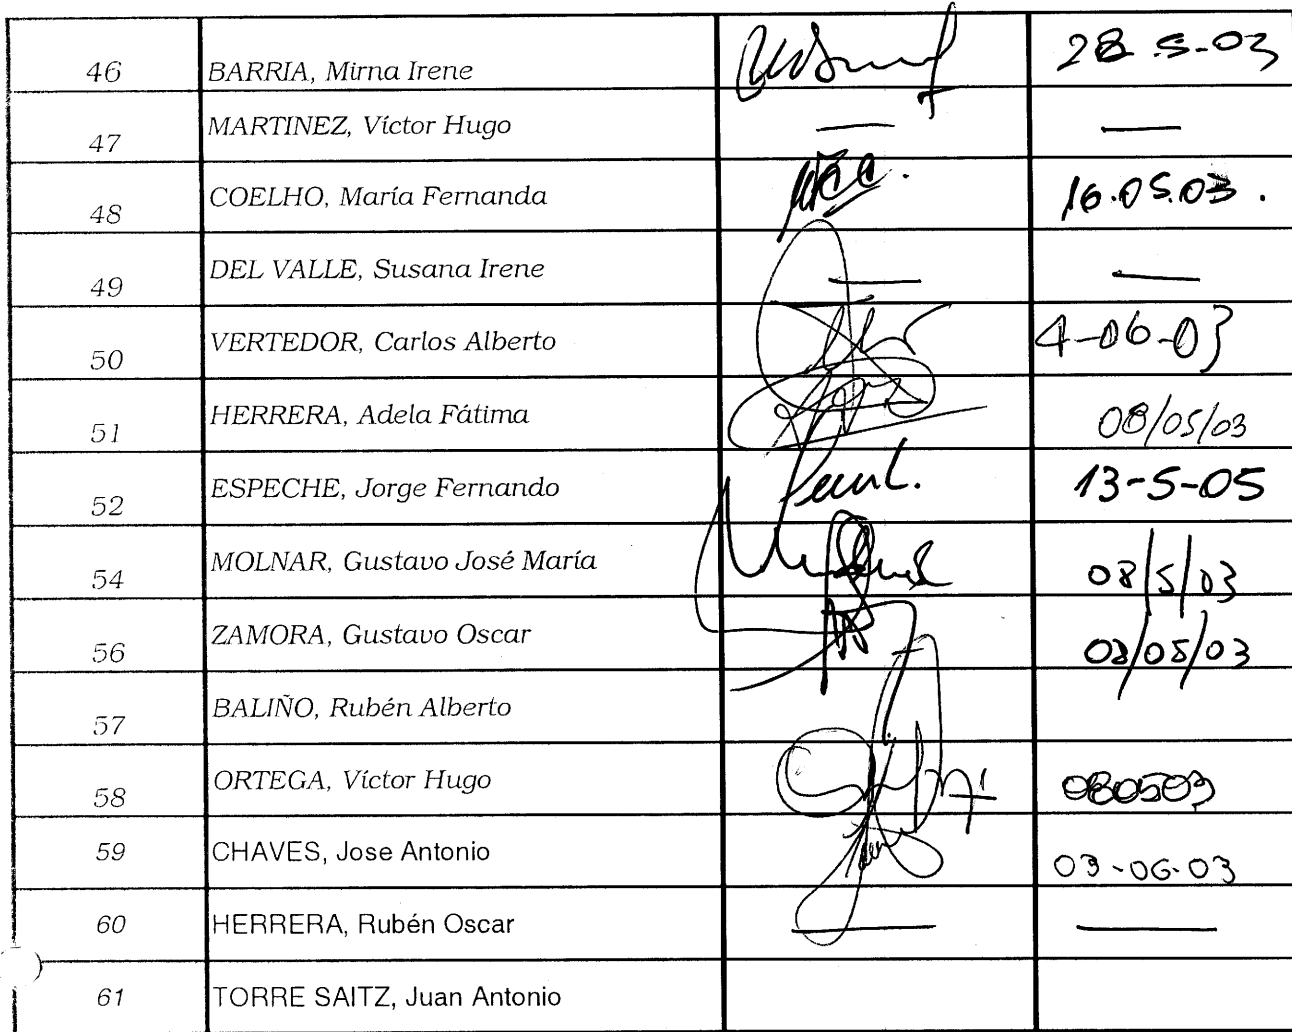 46 BARRIA, Mirna Irene 28-5-03
47 MARTINEZ, Víctor Hugo —— ——
48 COELHO, María Fernanda 16.05.03.
49 DEL VALLE, Susana Irene —— ——
50 VERTEDOR, Carlos Alberto 4-06-03
51 HERRERA, Adela Fátima 08/05/03
52 ESPECHE, Jorge Fernando 13-5-05
54 MOLNAR, Gustavo José María 08/5/03
56 ZAMORA, Gustavo Oscar 08/05/03
57 BALIÑO, Rubén Alberto
58 ORTEGA, Víctor Hugo 080503
59 CHAVES, Jose Antonio 03-06-03
60 HERRERA, Rubén Oscar —— ——
61 TORRE SAITZ, Juan Antonio